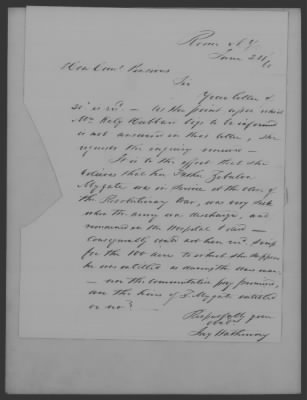 Rome N.Y.
June 28/
Hon Com. Pensions
Sir
Your letter of
is rec'd. — As the point upon which
Mrs Hubbard begs to be informed
is not answered in that letter, she
requests the enquiry renewed —
It is to the effect that she
believes that her Father Zebulon
Mygate was in service at the close of
the Revolutionary War, was very sick
when the army was discharged, and
remained in the Hospital &
— Consequently could not have rec'd. scrip
for the 100 acres to which she supposes
he was entitled as during the war man
— nor the commutation pay promised,
are the heirs of Z. Mygate entitled
or no?
Respectfully your
obdt.
Jay Hathaway